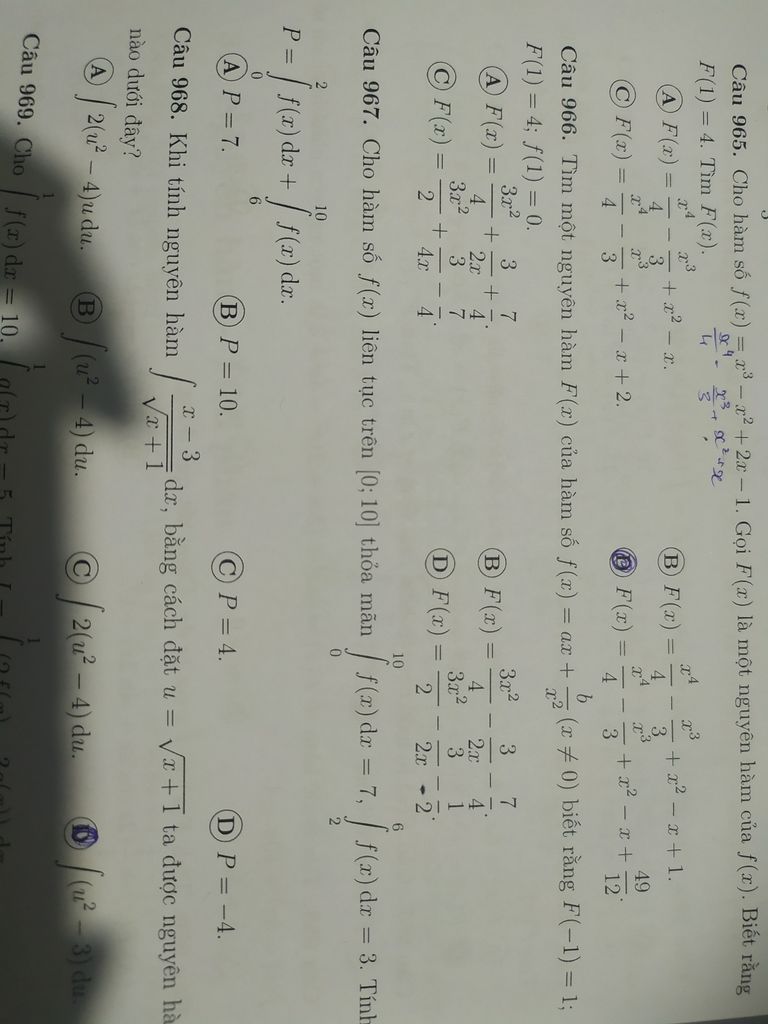 Câu 965. Cho hàm số f(x) = x³ − x² + 2x − 1. Gọi F(x) là một nguyên hàm của f(x). Biết rằng
F(1) = 4. Tìm F(x).
x⁴/4 - x³/3 + x² - x
Ⓐ F(x) = x⁴/4 − x³/3 + x² − x. Ⓑ F(x) = x⁴/4 − x³/3 + x² − x + 1.
Ⓒ F(x) = x⁴/4 − x³/3 + x² − x + 2. Ⓓ F(x) = x⁴/4 − x³/3 + x² − x + 49/12.
Câu 966. Tìm một nguyên hàm F(x) của hàm số f(x) = ax + b/x² (x ≠ 0) biết rằng F(−1) = 1;
F(1) = 4; f(1) = 0.
Ⓐ F(x) = 3x²/4 + 3/2x + 7/4. Ⓑ F(x) = 3x²/4 − 3/2x − 7/4.
Ⓒ F(x) = 3x²/2 + 3/4x − 7/4. Ⓓ F(x) = 3x²/2 − 3/2x − 1/2.
Câu 967. Cho hàm số f(x) liên tục trên [0; 10] thỏa mãn ∫₀¹⁰ f(x) dx = 7, ∫₂⁶ f(x) dx = 3. Tính
P = ∫₀² f(x) dx + ∫₆¹⁰ f(x) dx.
Ⓐ P = 7. Ⓑ P = 10. Ⓒ P = 4. Ⓓ P = −4.
Câu 968. Khi tính nguyên hàm ∫ (x − 3)/√(x + 1) dx, bằng cách đặt u = √(x + 1) ta được nguyên
nào dưới đây?
Ⓐ ∫ 2(u² − 4)u du. Ⓑ ∫ (u² − 4) du. Ⓒ ∫ 2(u² − 4) du. Ⓓ ∫ (u² − 3) du.
Câu 969. Cho ∫¹ f(x) dx = 10, ∫¹ g(x) dx = 5. Tính I = ∫¹